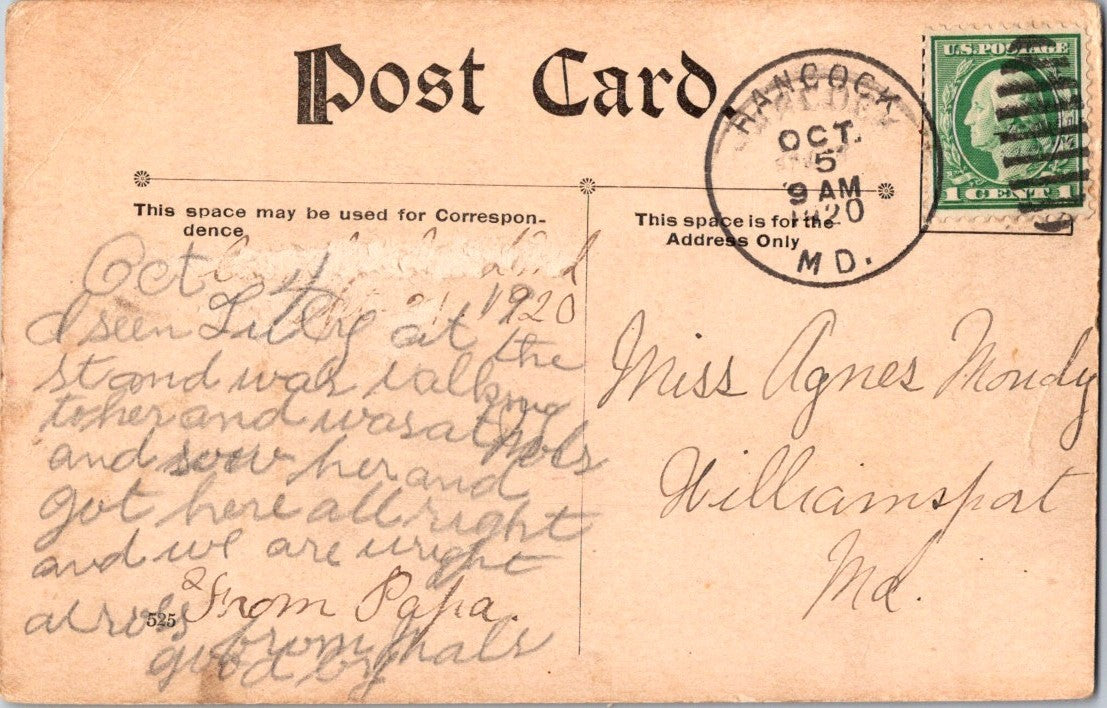 Post Card.
HANCOCK
OCT.
5
9 AM
1920
MD.
U.S. POSTAGE
1 CENT 1
This space may be used for Correspon-
dence
This space is for the
Address Only
Oct 4
1920
I seen at the
stand was talking
to her and was at Mals
and sow her and
got here all right
and we are wright
across from Mals
good by
From Papa.
525
Miss Agnes Moudy
Williamsport
Md.